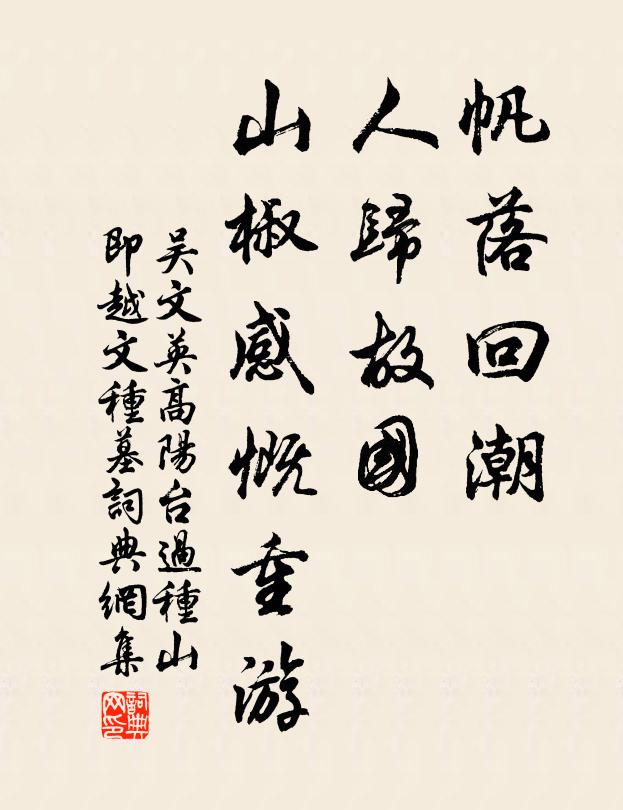 帆落回潮
人歸故國
山椒感慨重游
吴文英高陽台過種山
即越文種墓詞典網集
詞典網印